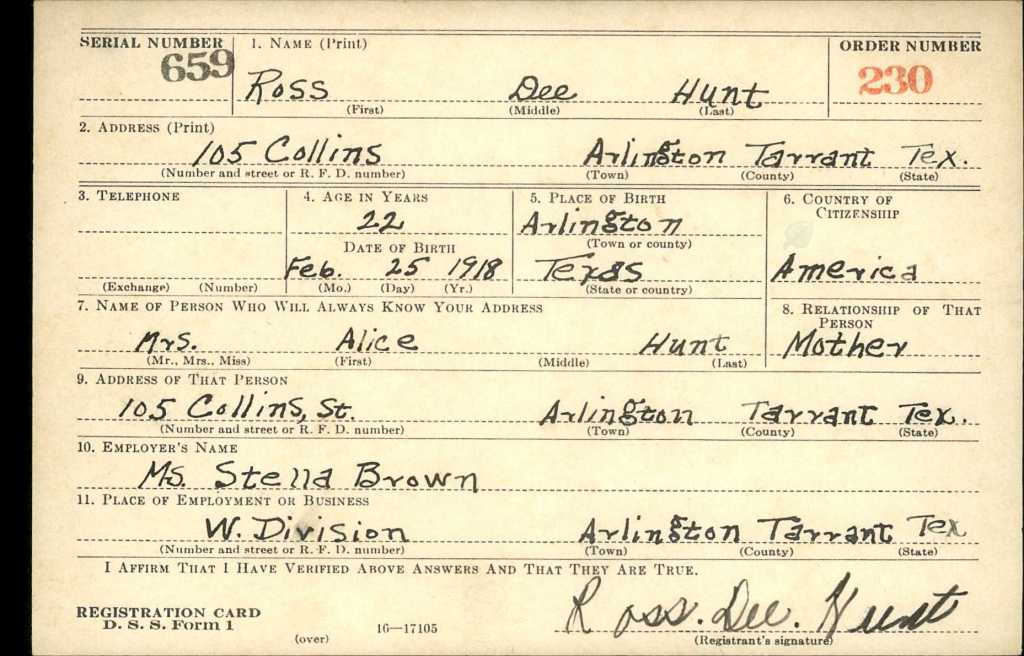 SERIAL NUMBER 1. NAME (Print) ORDER NUMBER
659 230
Ross Dee Hunt
(First) (Middle) (Last)
2. ADDRESS (Print)
105 Collins Arlington Tarrant Tex.
(Number and street or R. F. D. number) (Town) (County) (State)
3. TELEPHONE 4. AGE IN YEARS 5. PLACE OF BIRTH 6. COUNTRY OF
CITIZENSHIP
22 Arlington
(Town or county)
DATE OF BIRTH
Feb. 25 1918 Texas America
(Exchange) (Number) (Mo.) (Day) (Yr.) (State or country)
7. NAME OF PERSON WHO WILL ALWAYS KNOW YOUR ADDRESS 8. RELATIONSHIP OF THAT
PERSON
Mrs. Alice Hunt Mother
(Mr., Mrs., Miss) (First) (Middle) (Last)
9. ADDRESS OF THAT PERSON
105 Collins, St. Arlington Tarrant Tex.
(Number and street or R. F. D. number) (Town) (County) (State)
10. EMPLOYER'S NAME
Ms. Stella Brown
11. PLACE OF EMPLOYMENT OR BUSINESS
W. Division Arlington Tarrant Tex
(Number and street or R. F. D. number) (Town) (County) (State)
I AFFIRM THAT I HAVE VERIFIED ABOVE ANSWERS AND THAT THEY ARE TRUE.
REGISTRATION CARD
D. S. S. Form 1
(over) 16—17105
Ross. Dee. Hunt
(Registrant's signature)